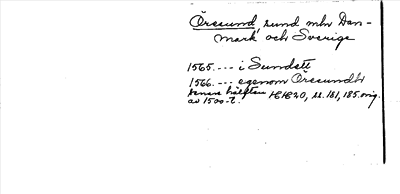 Öresund, sund mln Dan-
mark och Sverige
1565. --- i Sundett
1566. --- egenom Öresundh
senare hälften HH 20, s. 181, 185. orig.
av 1500-t.